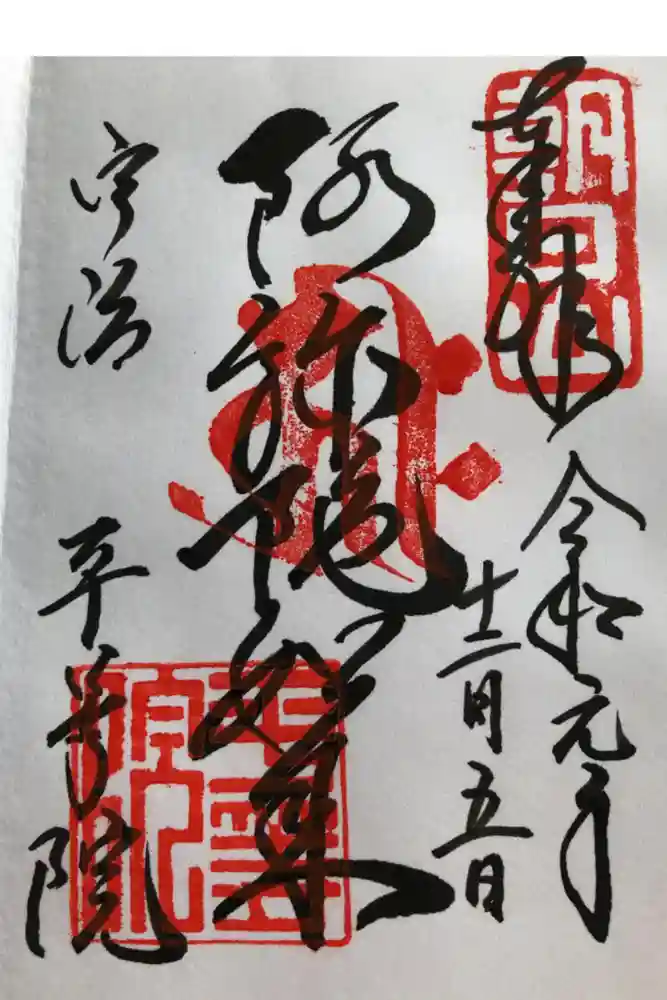 奉拝
朝日山
令和元年
十二月五日
阿弥陀如来
宇治
平等院